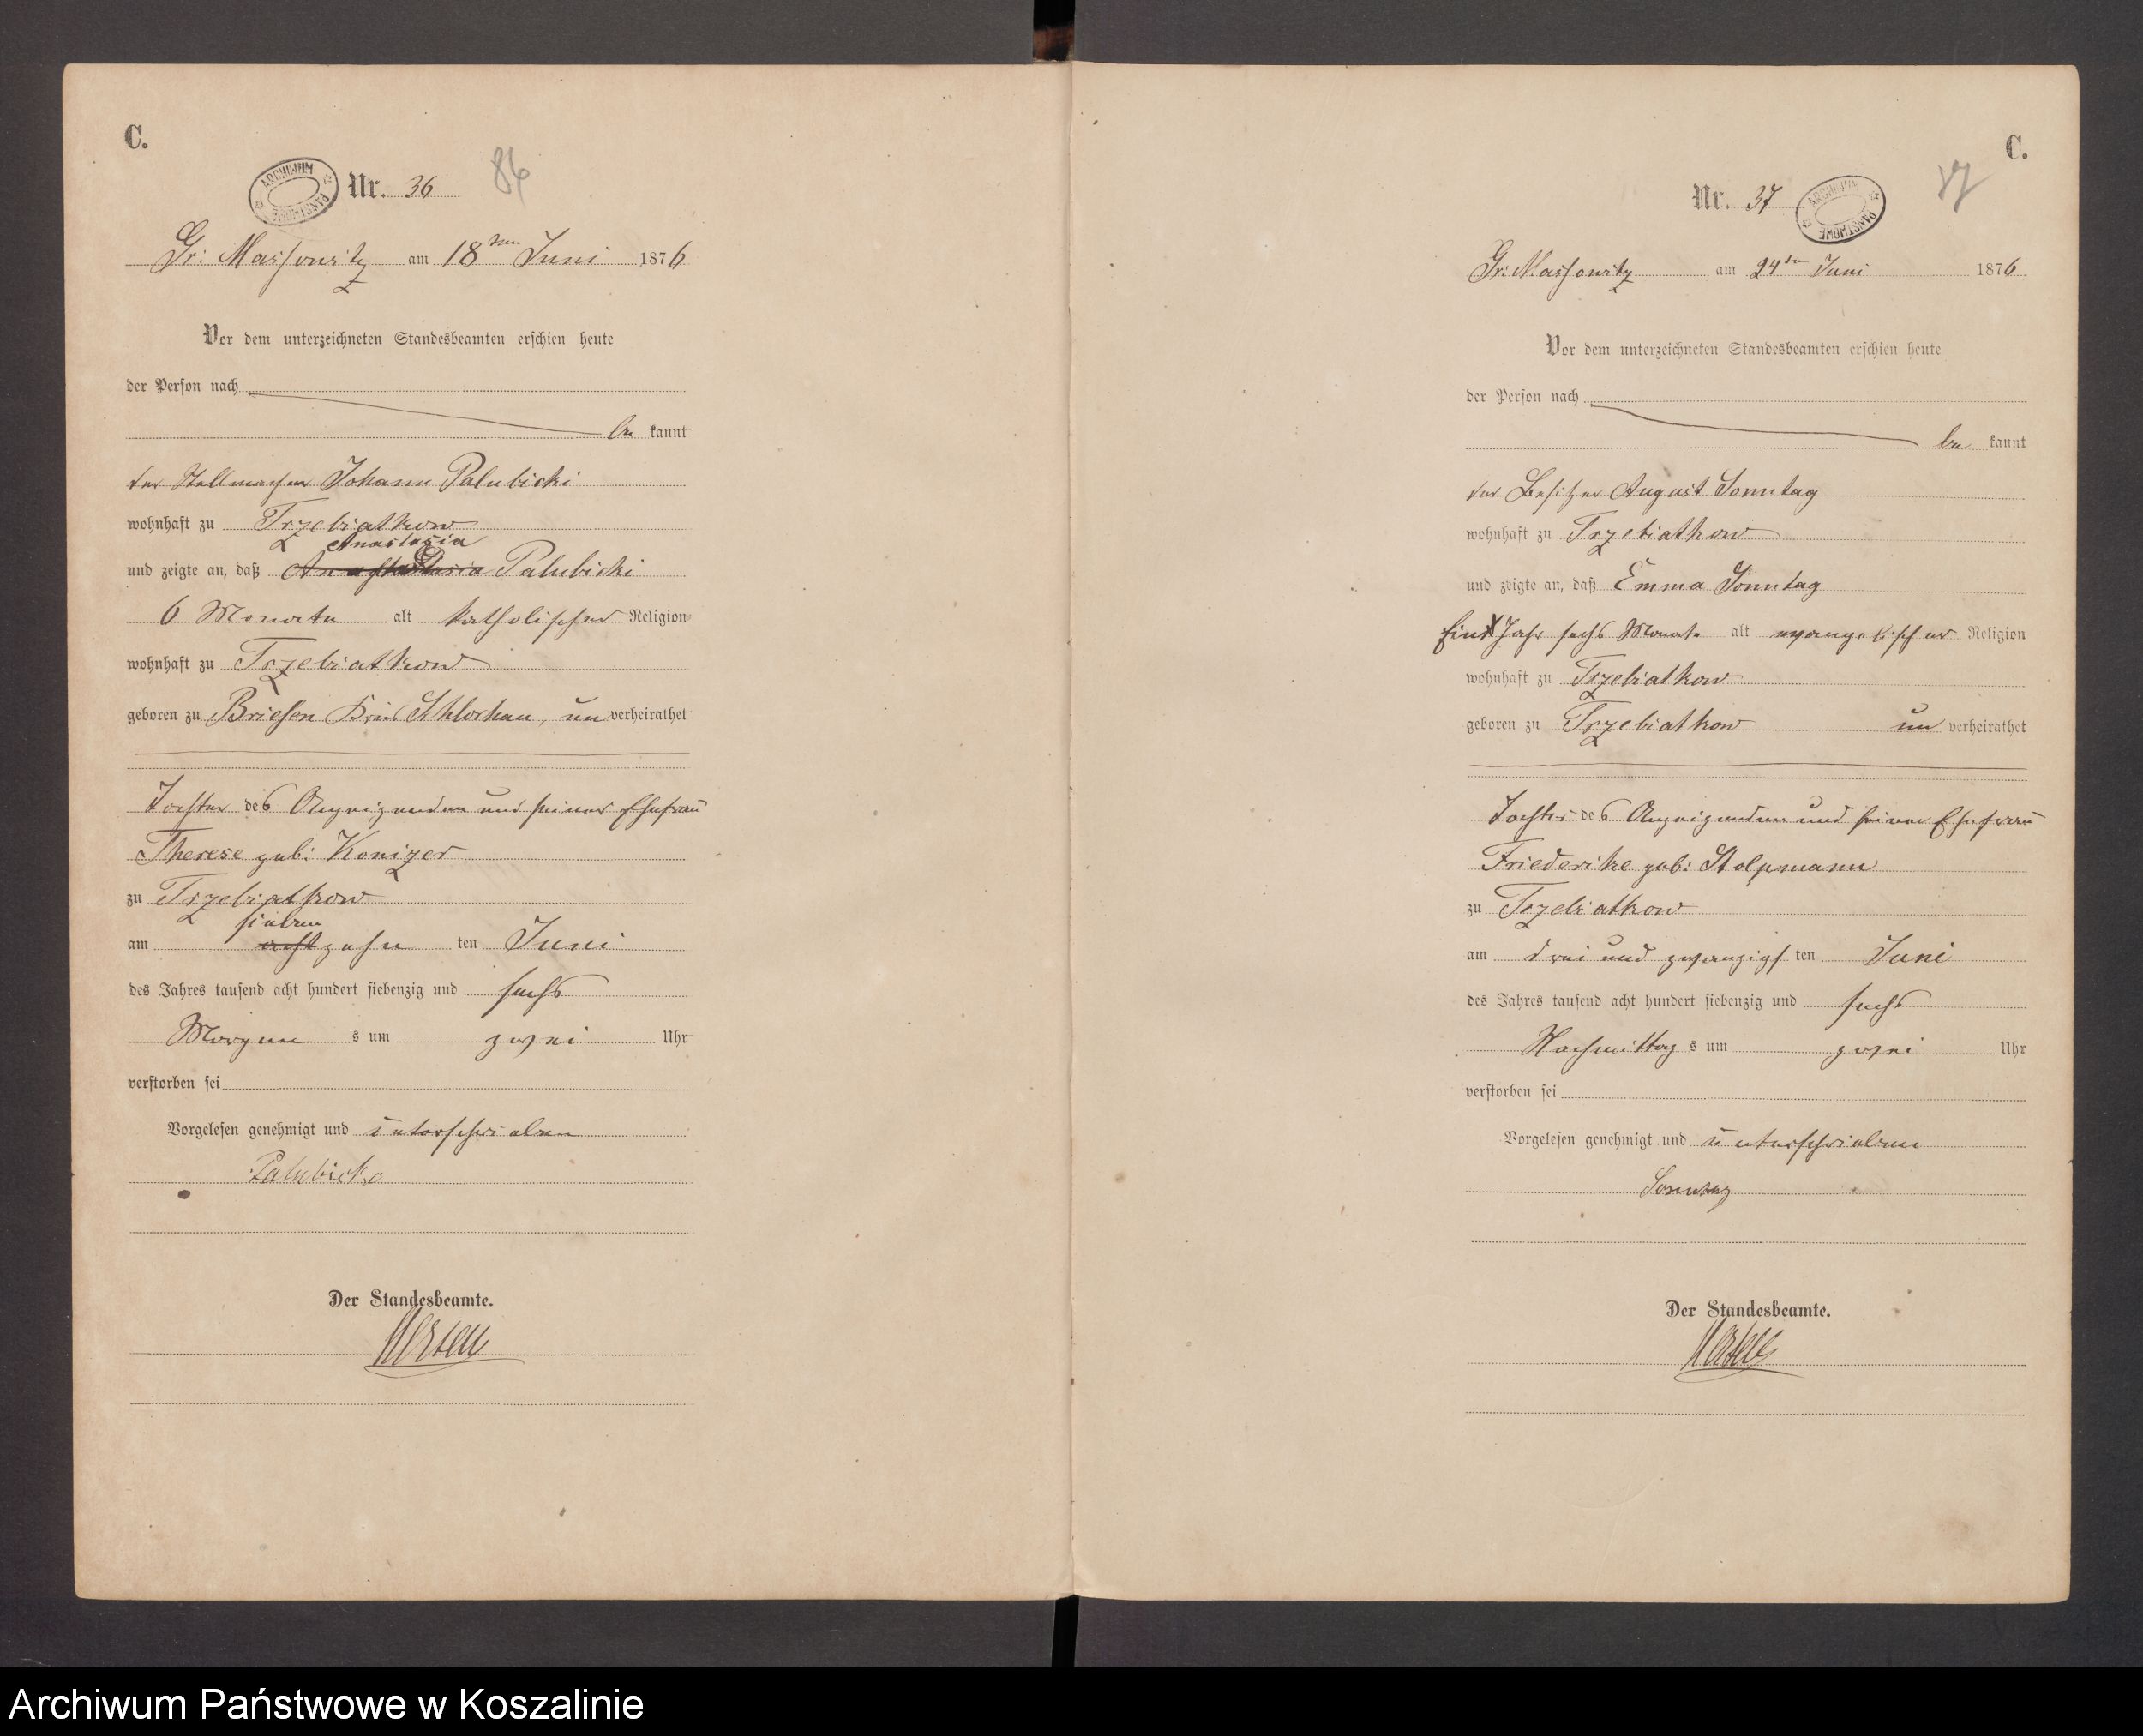 C.
Nr. 36
Gr: Massowitz am 18ten Juni 1876
Vor dem unterzeichneten Standesbeamten erschien heute
der Person nach
be kannt
der Stellmacher Johann Palubicki
wohnhaft zu Trzebiatkow
Anastasia
und zeigte an, daß Palubicki
6 Monate alt katholischer Religion
wohnhaft zu Trzebiatkow
geboren zu Briesen Kreis Schlochau, un verheirathet
Tochter des Anzeigenden und seiner Ehefrau
Therese geb: Konizer
zu Trzebiatkow
sieben
am achtzehn ten Juni
des Jahres tausend acht hundert siebenzig und sechs
Morgen s um zwei Uhr
verstorben sei
Vorgelesen genehmigt und unterschrieben
Palubicki
Der Standesbeamte.
C.
Nr. 37
ARCHIWUM PAŃSTWOWE
Gr: Massowitz am 24ten Juni 1876
Vor dem unterzeichneten Standesbeamten erschien heute
der Person nach
be kannt
der Besitzer August Sonntag
wohnhaft zu Trzebiatkow
und zeigte an, daß Emma Sonntag
Ein Jahr sechs Monate alt evangelischer Religion
wohnhaft zu Trzebiatkow
geboren zu Trzebiatkow un verheirathet
Tochter des Anzeigenden und seiner Ehefrau
Friederike geb: Stolpmann
zu Trzebiatkow
am drei und zwanzigs ten Juni
des Jahres tausend acht hundert siebenzig und sechs
Nachmittag s um zwei Uhr
verstorben sei
Vorgelesen genehmigt und unterschrieben
Sonntag
Der Standesbeamte.
Archiwum Państwowe w Koszalinie